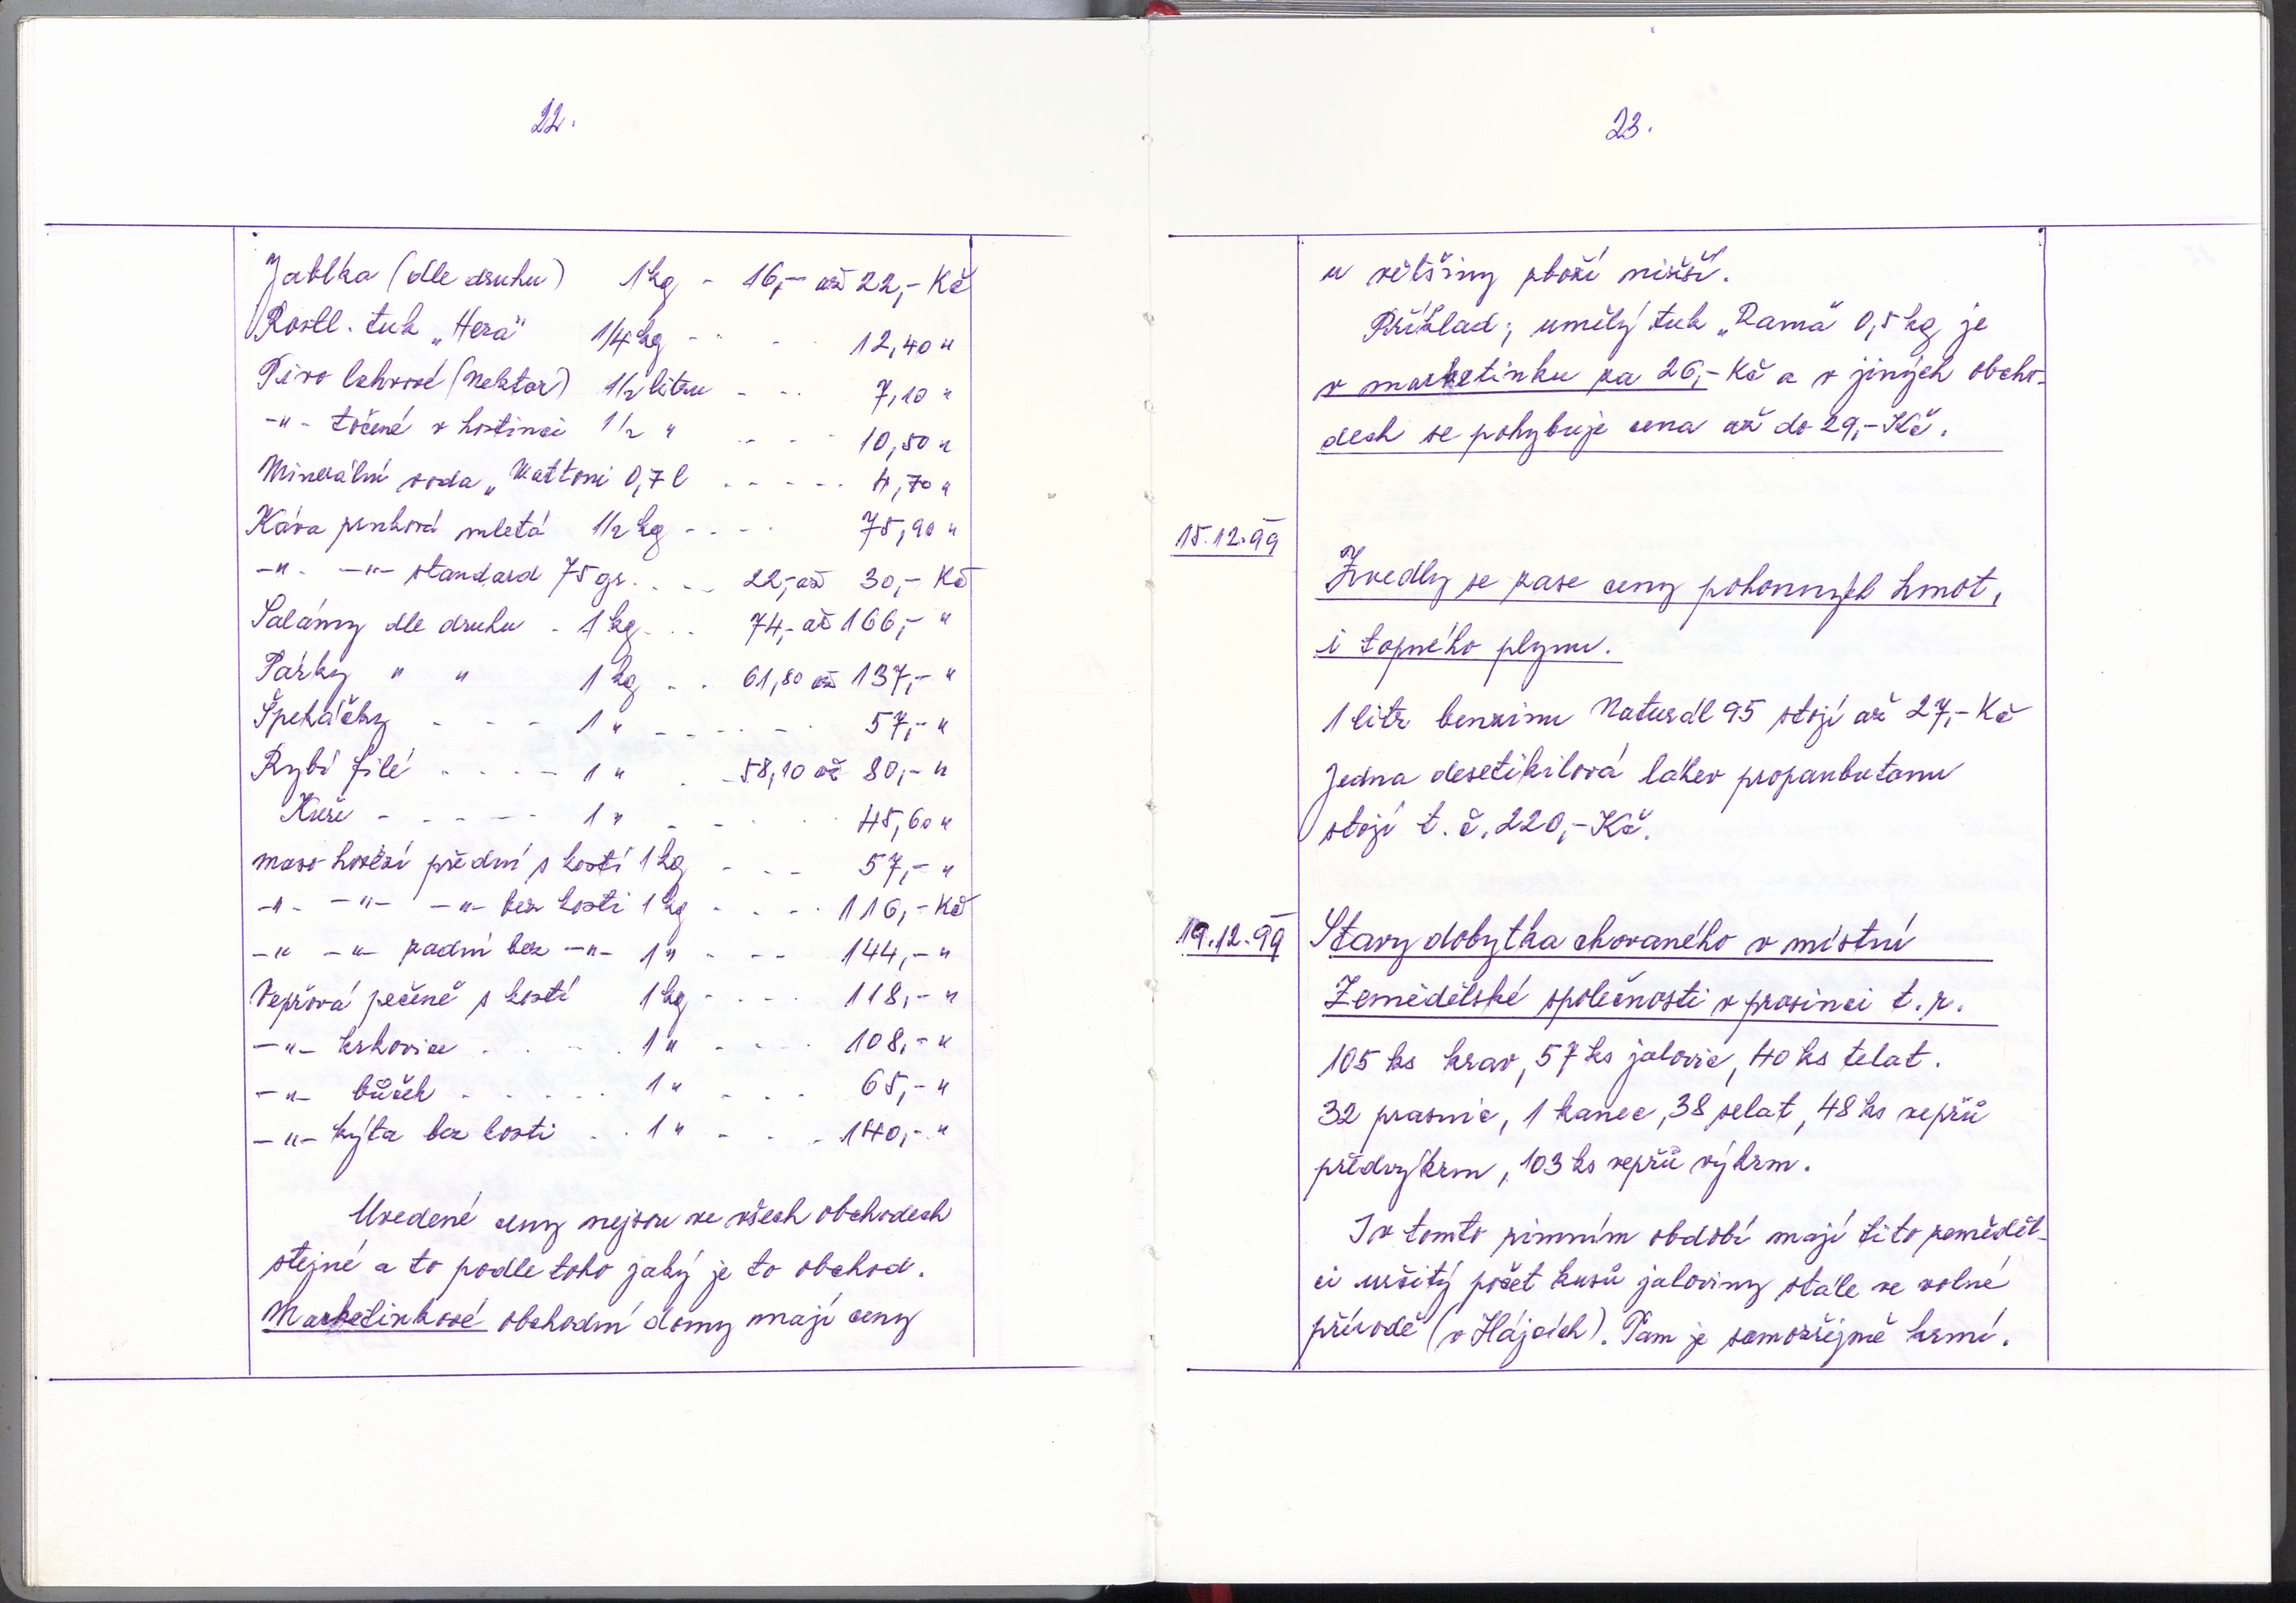 22.
Jablka (dle druhu) 1kg - 16,- až 22,- Kč
Rostl. tuk „Hera" 1/4kg - - - - 12,40 "
Pivo lahvové (Nektar) 1/2 litru - - - 7,10 "
-"- točené v hostinci 1/2 " - - - 10,50 "
Minerální voda „Mattoni 0,7 l - - - - - 4,70 "
Káva prnhová mletá 1/2 kg - - - - 75,90 "
-"- -"- standard 75 gr. - - 22,- až 30,- Kč
Salámy dle druhu - 1 kg - - - 74,- až 166,- "
Párky " " 1 kg - - 61,80 až 137,- "
Špekáčky - - - 1 " - - - - - 57,- "
Rybí filé - - - - 1 " - - 58,10 až 80,- "
Kuře - - - - - 1 " - - - - 45,60 "
maso hovězí přední s kostí 1 kg - - - 57,- "
-"- -"- -"- bez kosti 1 kg - - - - 116,- Kč
-"- -"- zadní bez -"- 1 " - - - 144,- "
Vepřová pečeně s kostí 1 kg - - - - 118,- "
-"- krkovice - - - - 1 " - - - - 108,- "
-"- bůček - - - - - 1 " - - - 65,- "
-"- kýta bez kosti - - 1 " - - - 140,- "
Uvedené ceny nejsou ve všech obchodech
stejné a to podle toho jaký je to obchod.
Marketinkové obchodní domy mají ceny
23.
u většiny zboží nižší.
Příklad; umělý tuk „Rama" 0,5 kg je
v marketinku za 26,- Kč a v jiných obcho-
dech se pohybuje cena až do 29,- Kč.
15.12.99
Zvedly se zase ceny pohonných hmot,
i topného plynu.
1 litr benzinu Naturál 95 stojí až 27,- Kč
Jedna desetikilová láhev propanbutanu
stojí t. č. 220,- Kč.
19.12.99 Stavy dobytka chovaného v místní
Zemědělské společnosti v prosinci t. r.
105 ks krav, 57 ks jalovic, 40 ks telat.
32 prasnic, 1 kanec, 38 selat, 48 ks vepřů
předvýkrm, 103 ks vepřů výkrm.
I v tomto zimním období mají tito zeměděl-
ci určitý počet kusů jaloviny stále ve volné
přírodě (v Hájcích). Tam je samozřejmě krmí.